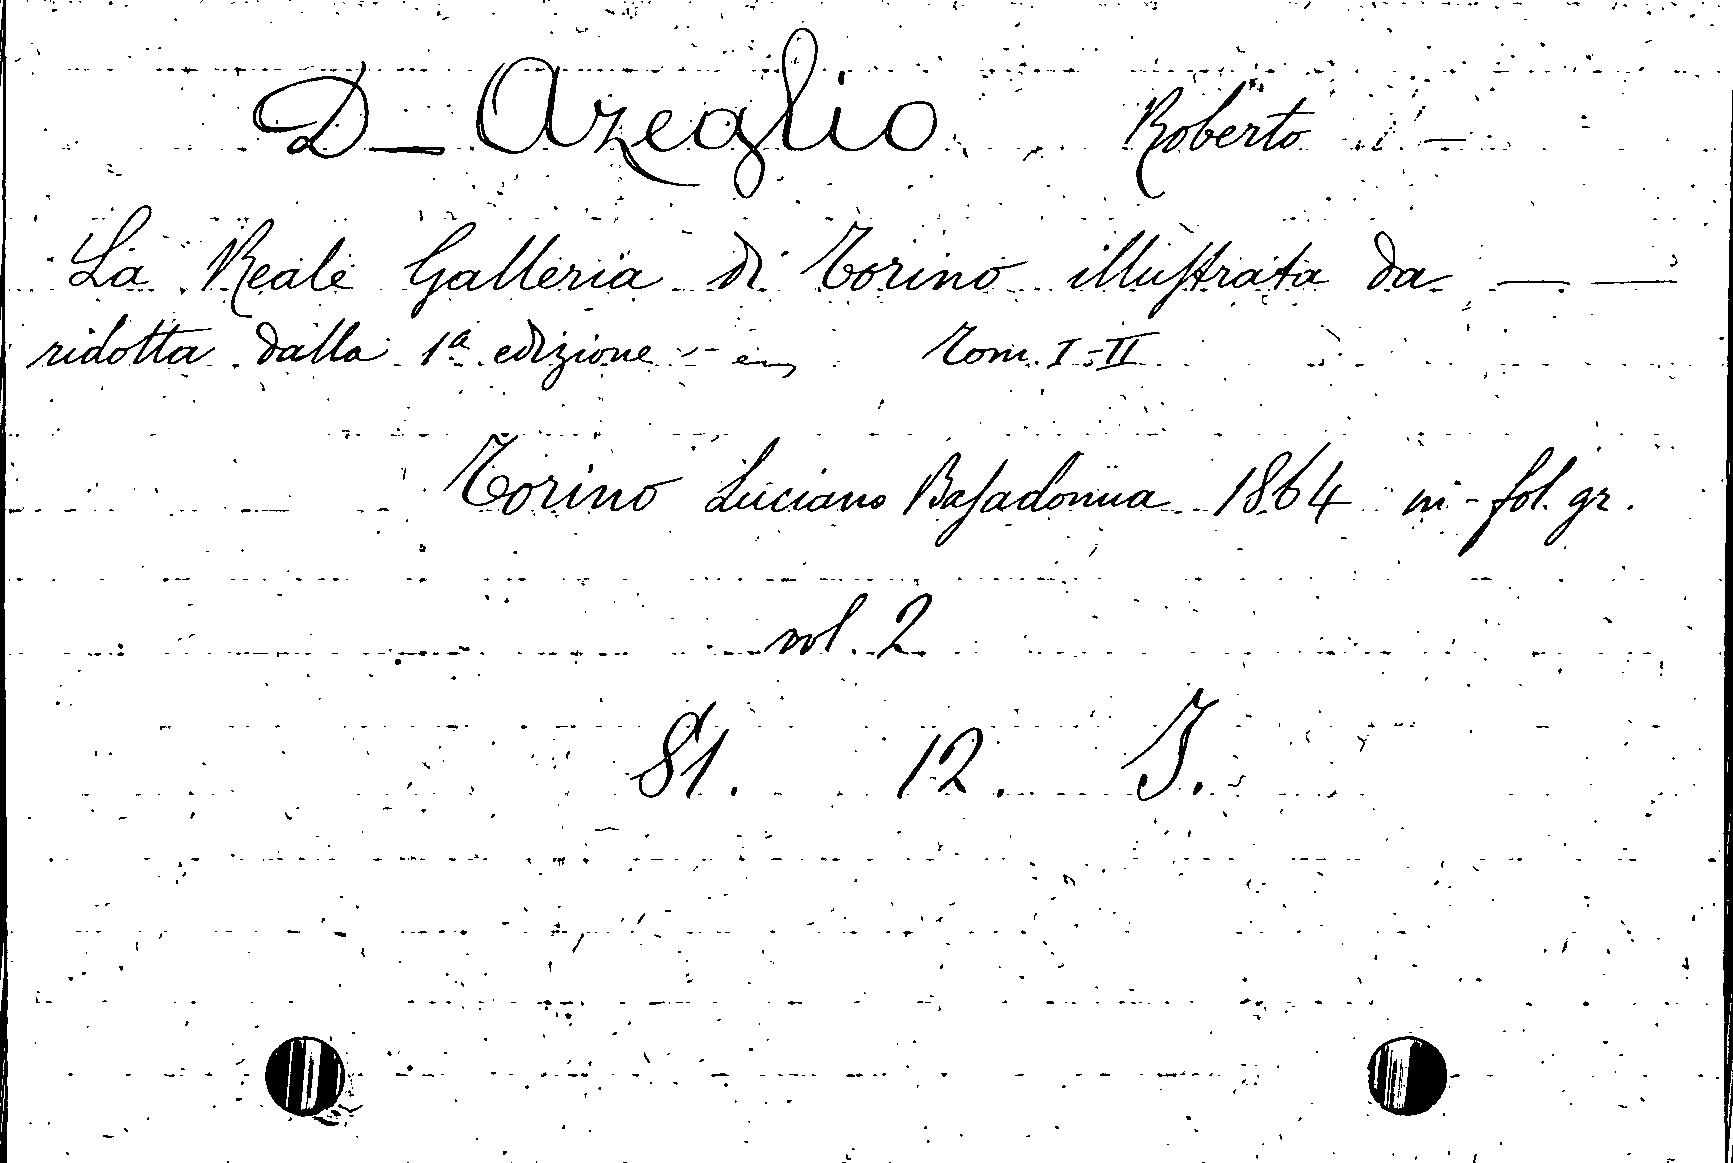 D_ Azeglio Roberto d' -
La Reale Galleria di Torino illustrata da — —
ridotta dalla 1ª edizione Tom. I-II
Torino Luciano Basadonna 1864 in-fol. gr.
vol. 2
S1. 12. I.